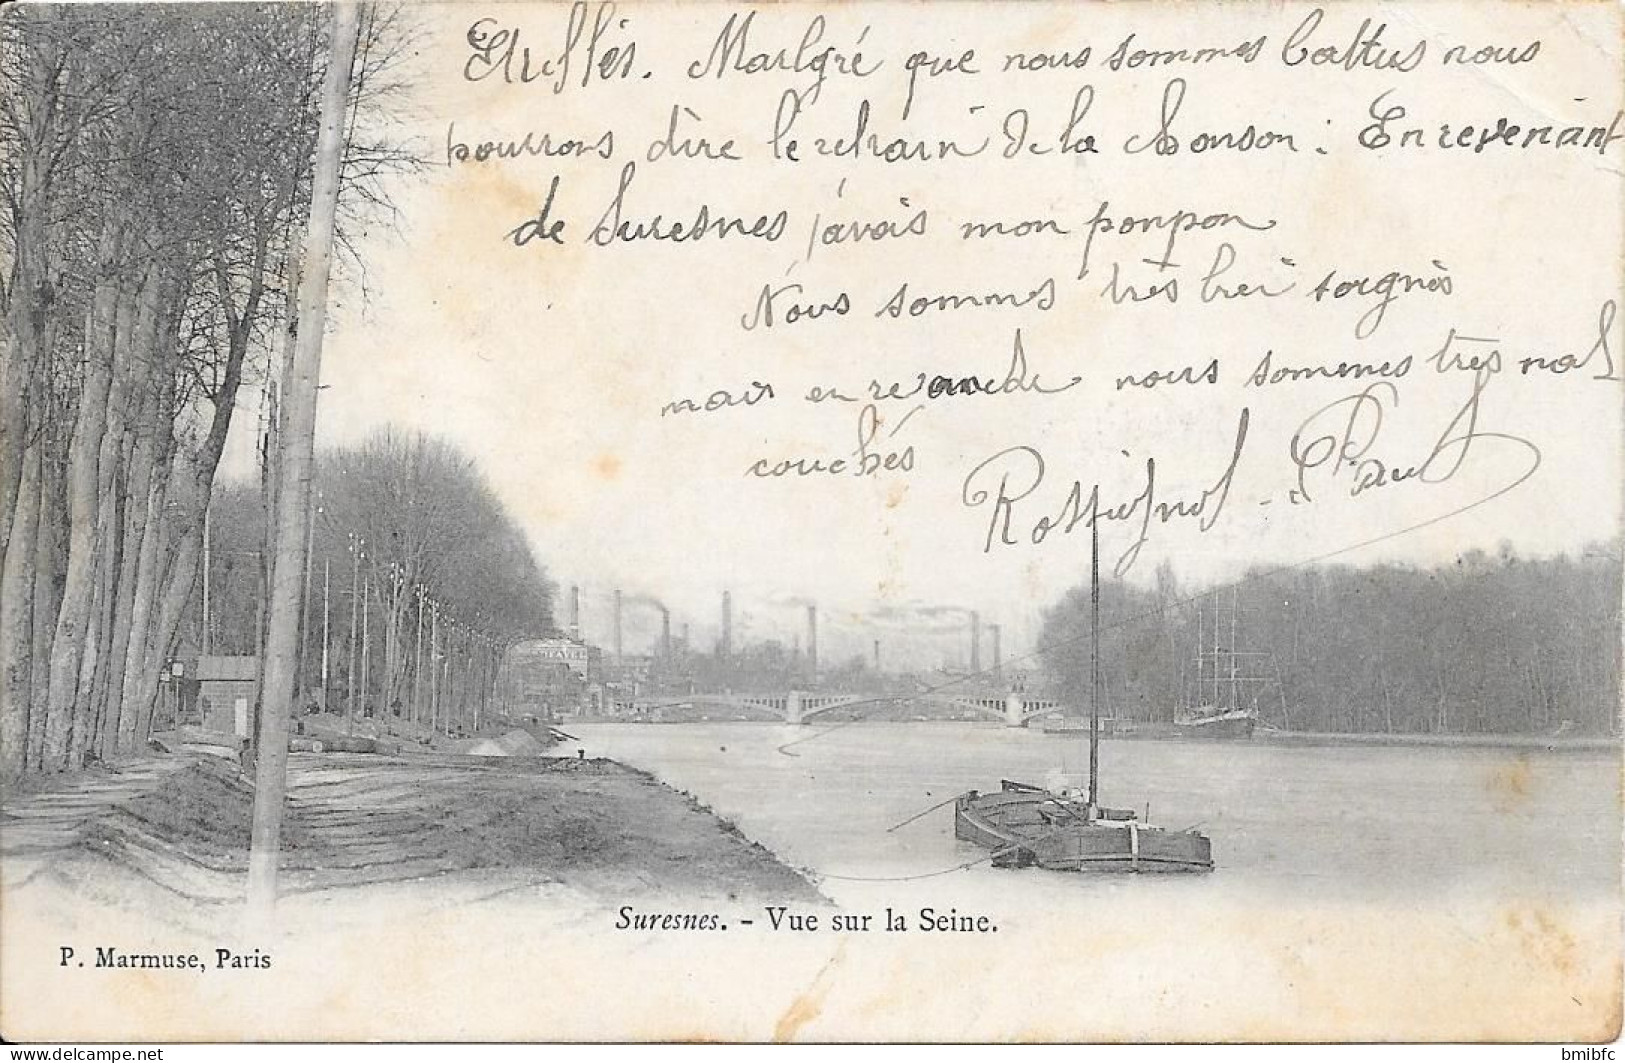 Truffés. Malgré que nous sommes battus nous
pourrons dire le refrain de la chanson : En revenant
de Suresnes j'avais mon ponpon
Nous sommes très bien soignés
mais en revanche nous sommes très mal
couchés
Rossignol Paul
Suresnes. - Vue sur la Seine.
P. Marmuse, Paris
bmibfc